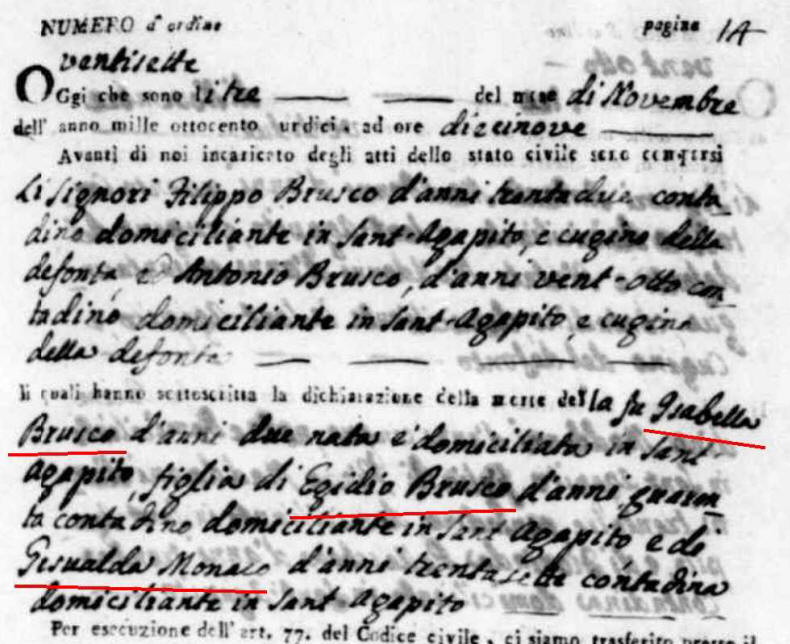 NUMERO d'ordine pagina 14
ventisette
Oggi che sono li tre del mese di Novembre
dell' anno mille ottocento undici, ad ore diecinove
Avanti di noi incaricato degli atti dello stato civile sono comparsi
Li Signori Filippo Brusco d'anni trentadue conta
dino domiciliante in Sant-Agapito, e cugino della
defonta, ed Antonio Brusco, d'anni vent-otto con
tadino domiciliante in Sant-Agapito, e cugino
della defonta
li quali hanno sottoscritta la dichiarazione della morte della fu Isabella
Brusco d'anni due nata e domiciliata in Sant
Agapito, figlia di Egidio Brusco d'anni quaran
ta contadino domiciliante in Sant Agapito e di
Gesualda Monaco d'anni trentasette contadina
domiciliante in Sant Agapito
Per esecuzione dell'art. 77. del Codice civile, ci siamo trasferito presso il